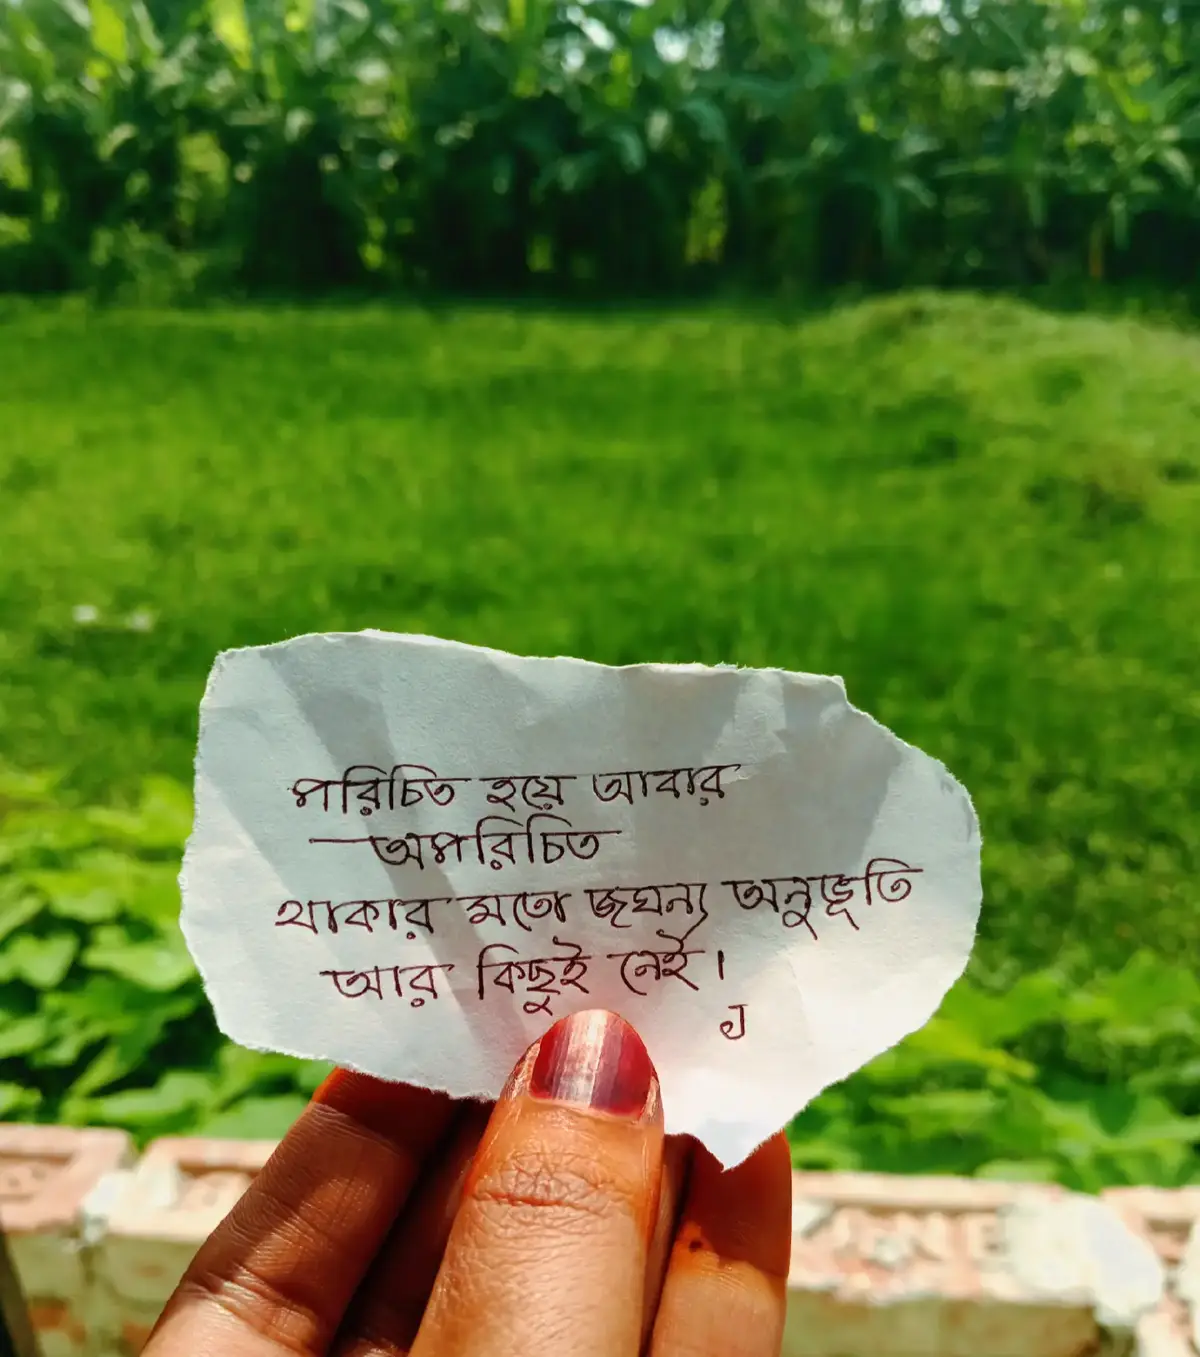 পরিচিত হয়ে আবার
—অপরিচিত
থাকার মতো জঘন্য অনুভূতি
আর কিছুই নেই।
J